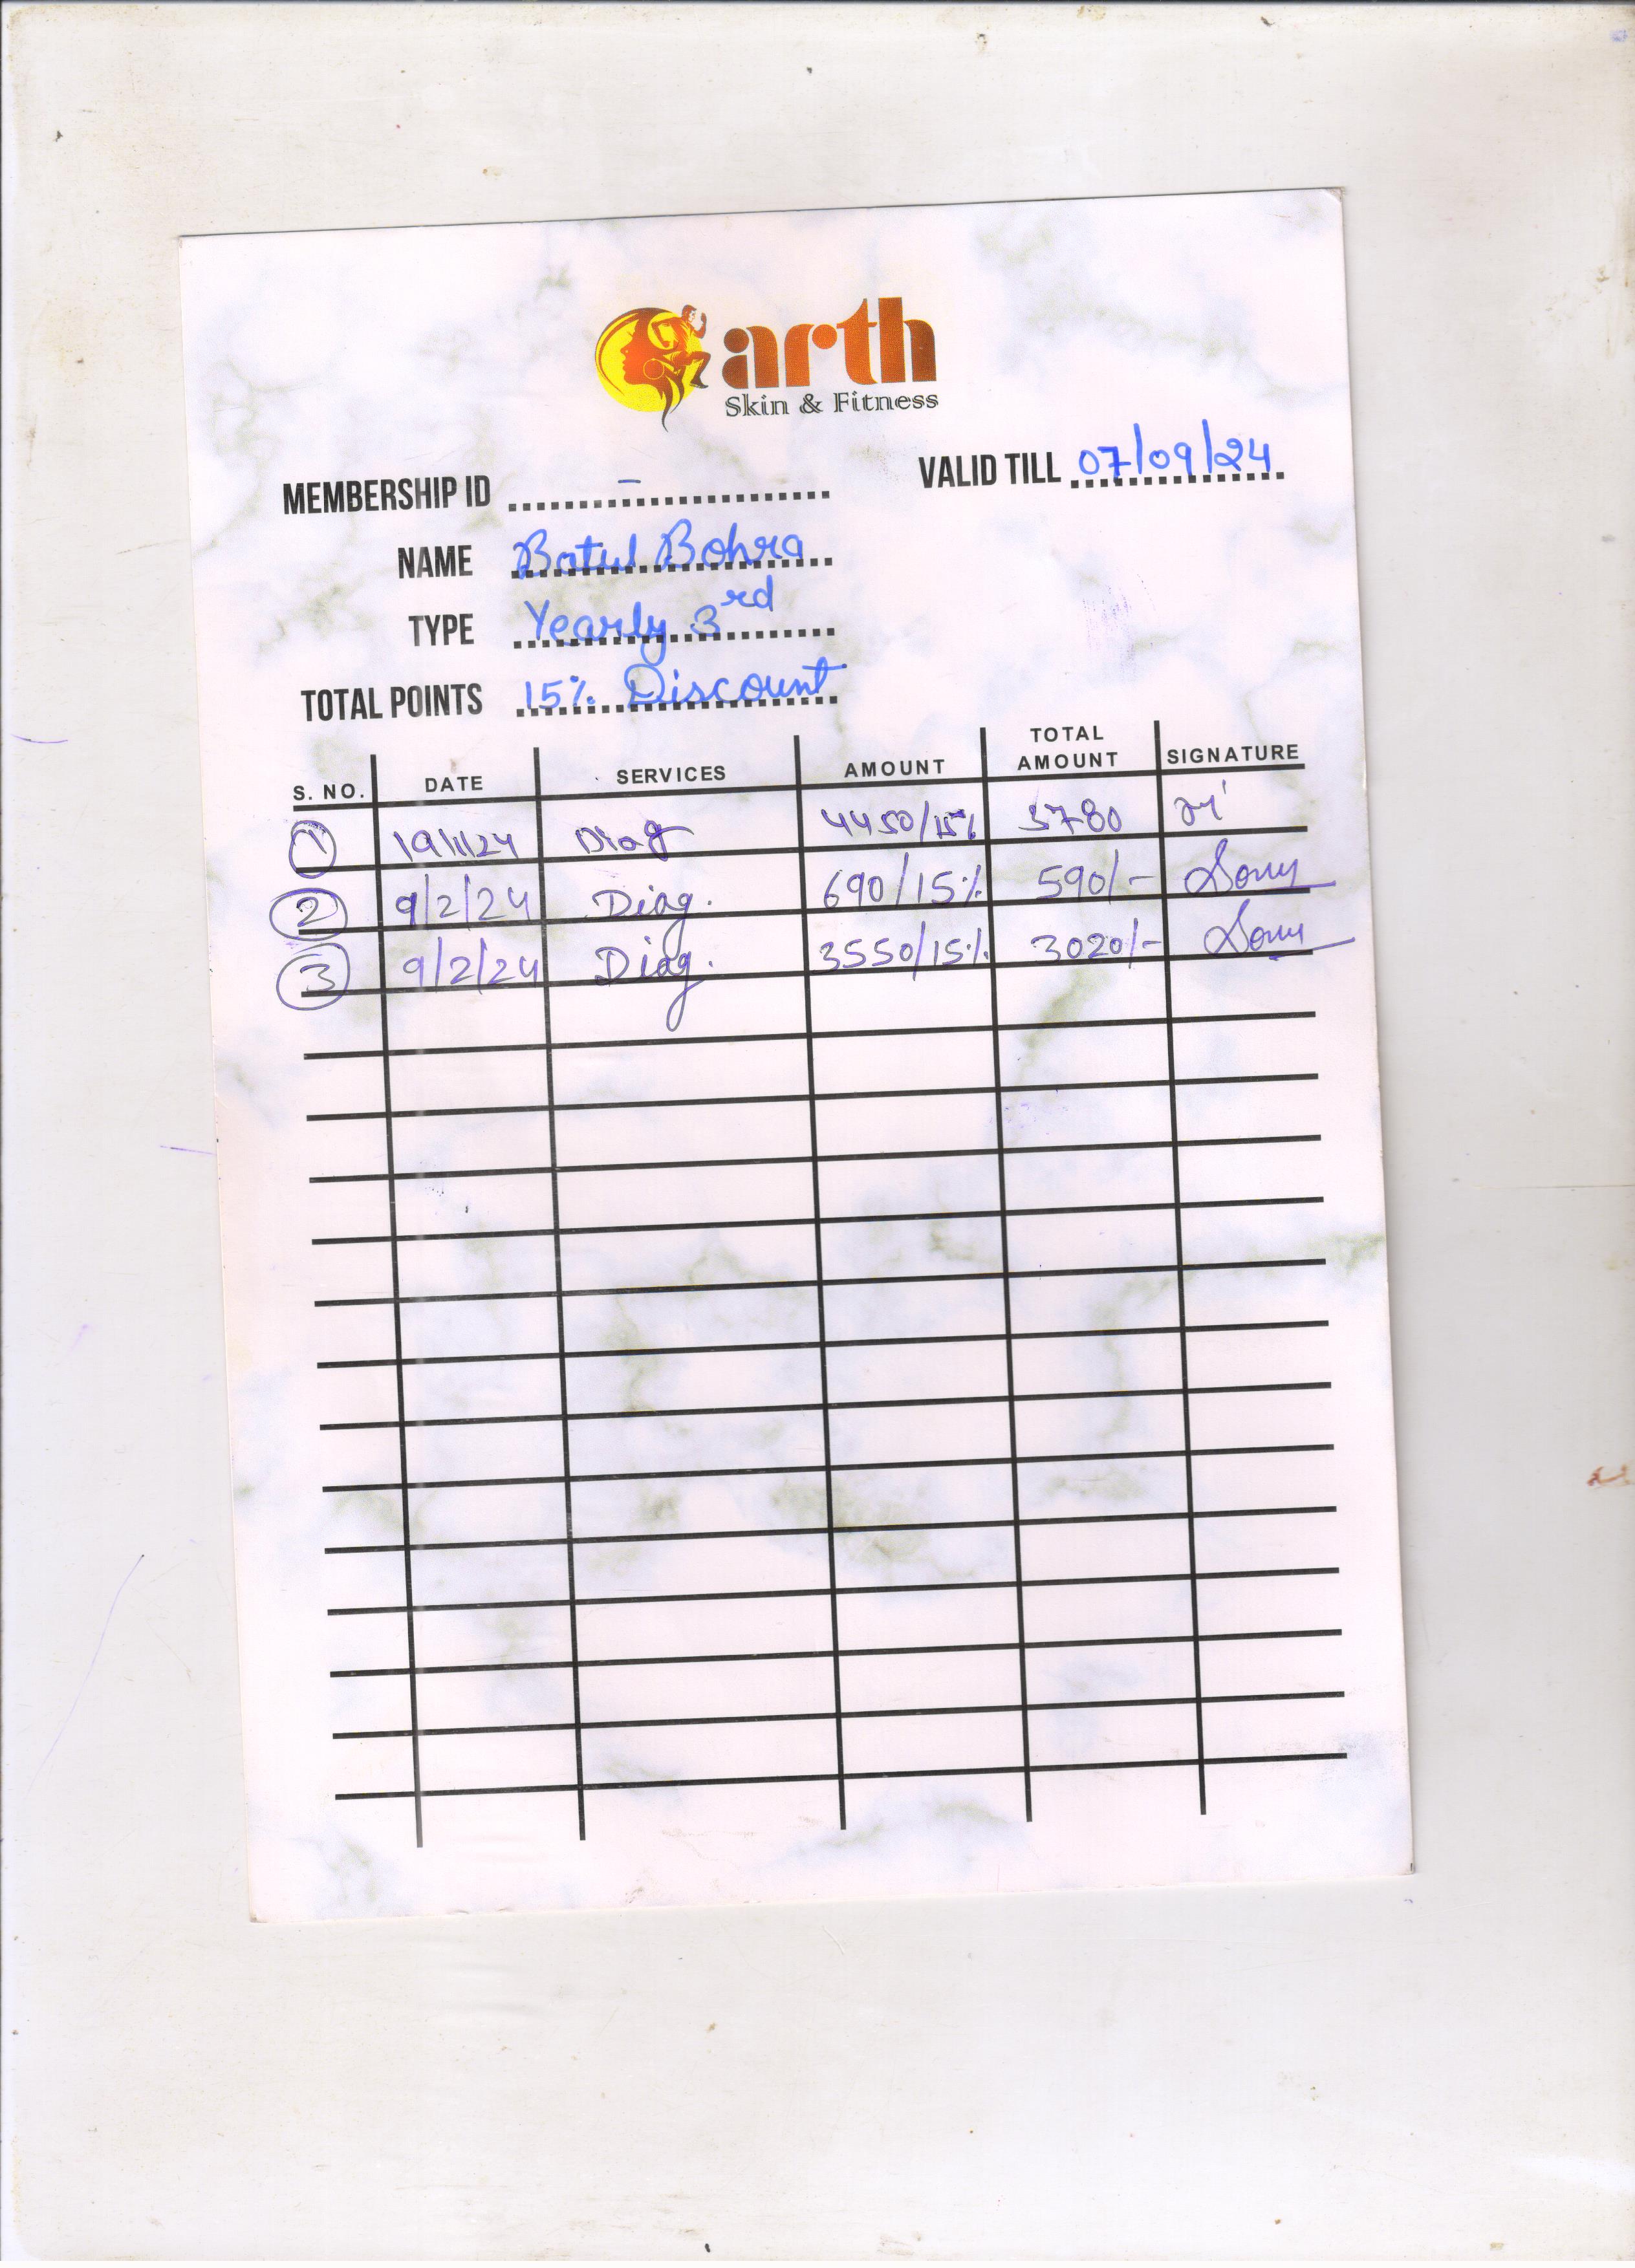 arth
Skin & Fitness
VALID TILL 07/09/24
MEMBERSHIP ID –
NAME Batul Bohra
TYPE Yearly 3rd
TOTAL POINTS 15% Discount
S. NO. DATE SERVICES AMOUNT TOTAL AMOUNT SIGNATURE
1 19/1/24 Diag 4450/15% 3780
2 9/2/24 Diag. 690/15% 590/- Sonu
3 9/2/24 Diag. 3550/15% 3020/- Sonu